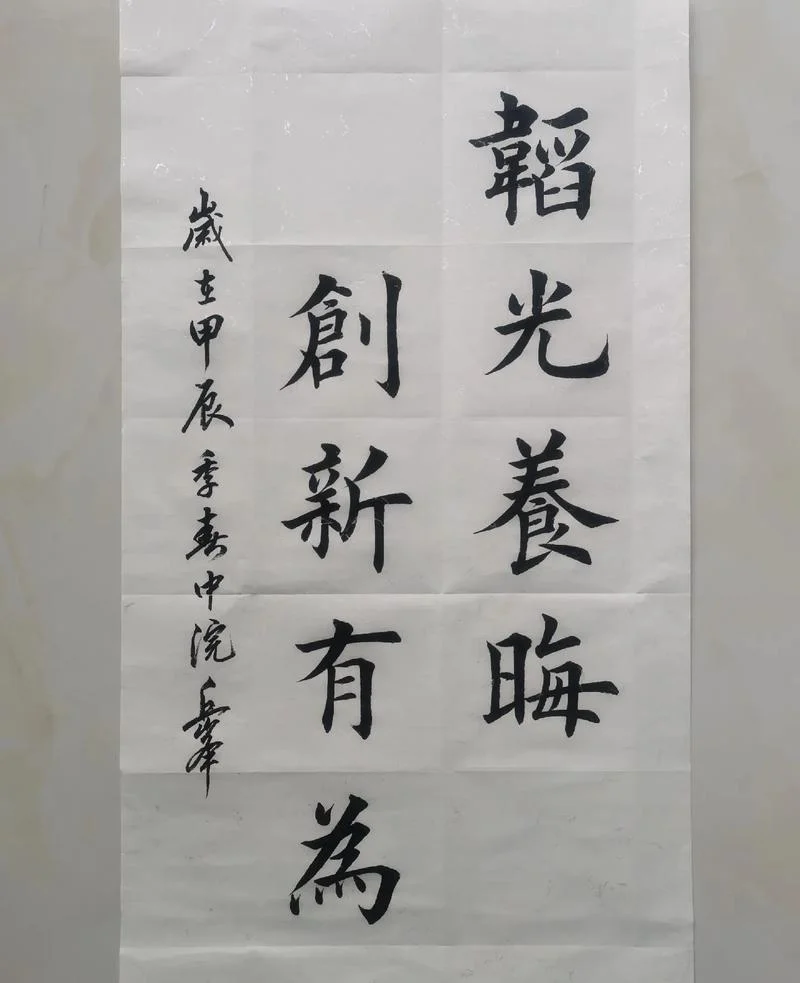 韜光養晦
創新有為
歲在甲辰季春中浣